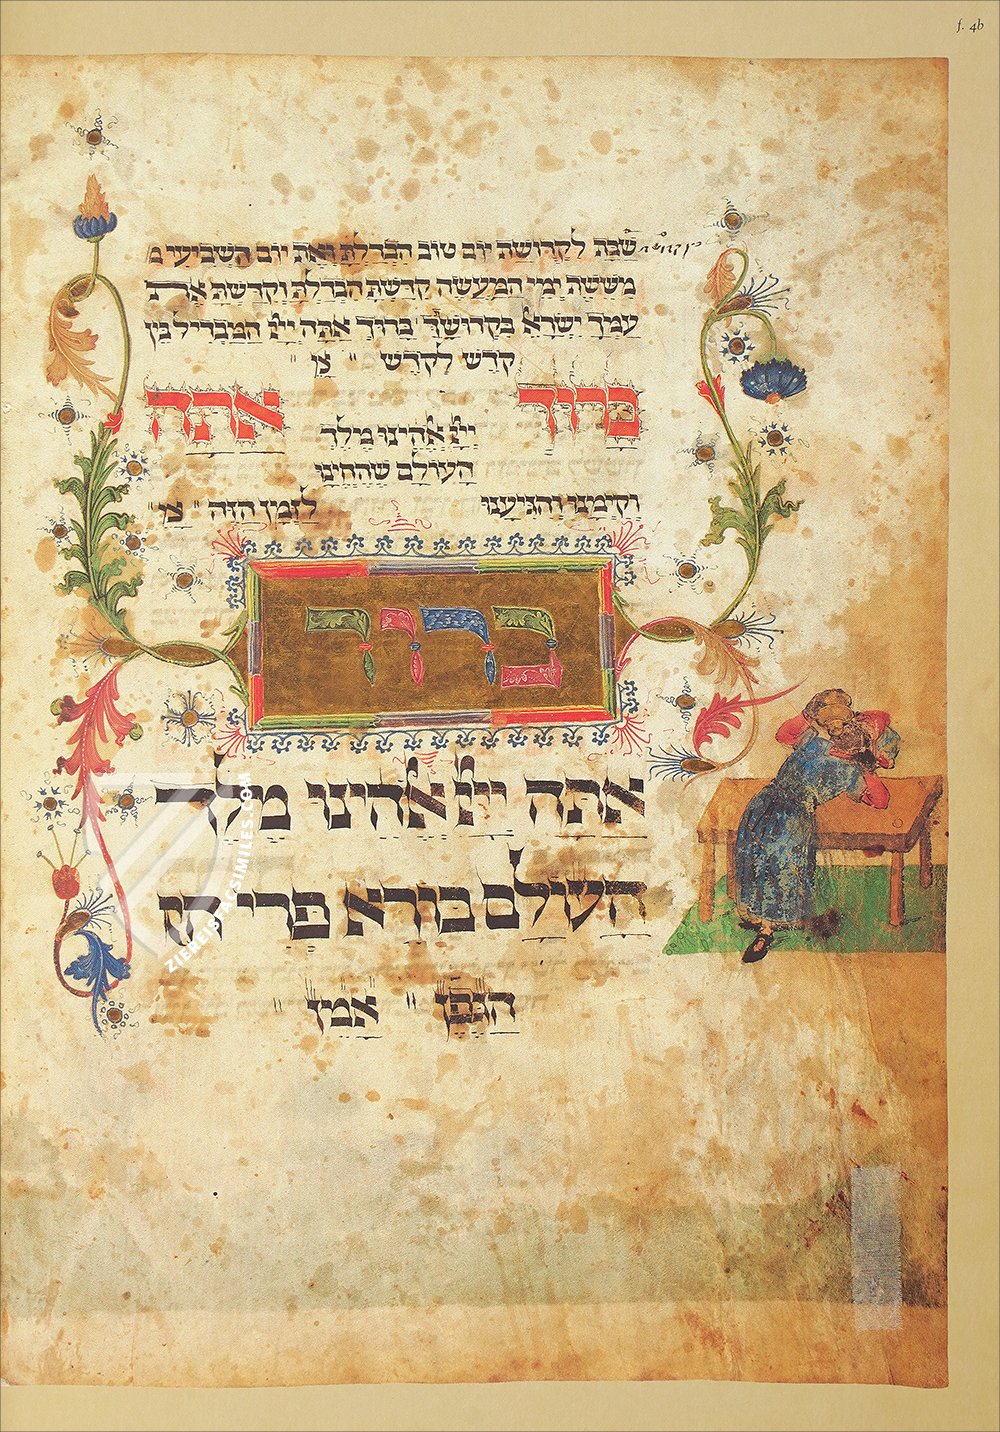 f. 4b
שבת לקדושת יום טוב הבדלת ואת יום השביעי מ
מששת ימי המעשה קדשת הבדלת וקדשת את
עמך ישרא בקדושתך ברוך אתה ייי המבדיל בין
קדש לקדש
ברוך אתה
ייי אהינו מלך
העולם שהחינו
וקימנו והגיענו לזמן הזה
ברוך
אתה ייי אהינו מלך
העולם בורא פרי הגן
הגפן אמן
ZIEREIS FACSIMILES.COM